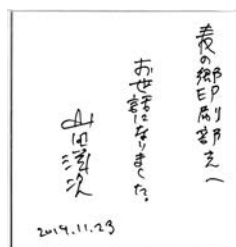 麦の郷印刷部さんへ
お世話になりました。
山田洋次
2014.11.23